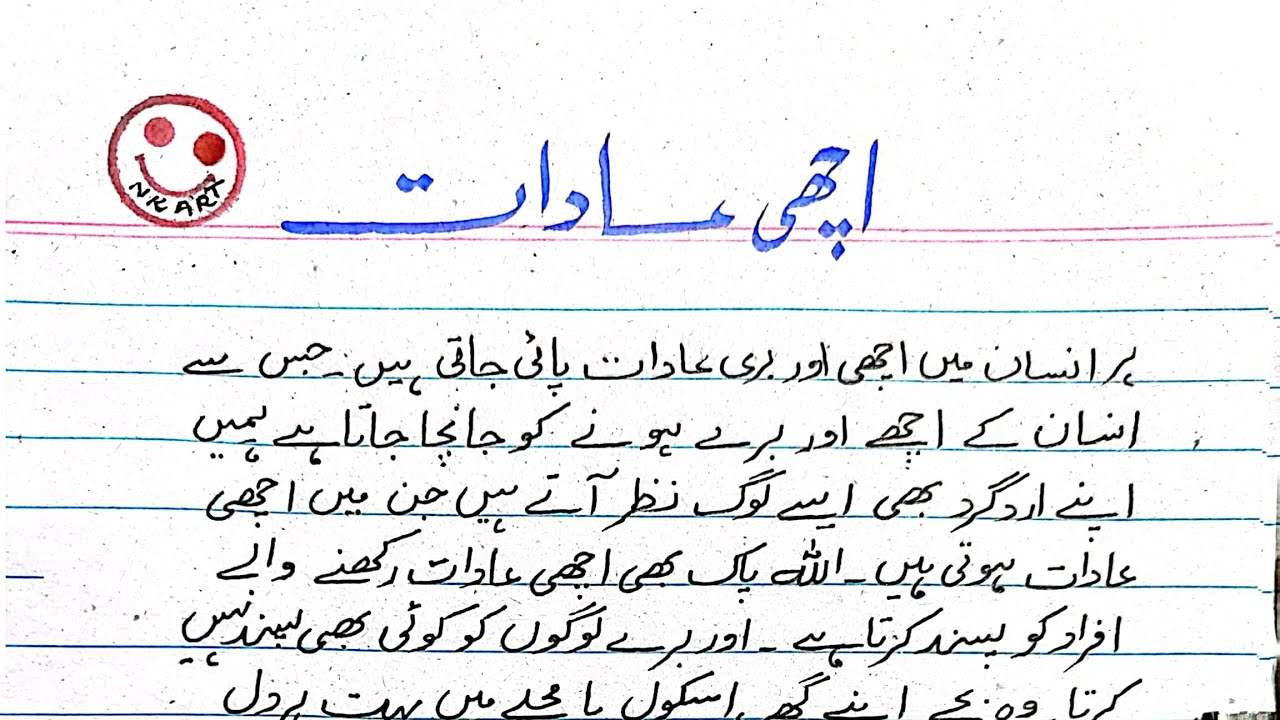 NK ART
اچھی عادات
ہر انسان میں اچھی اور بری عادات پائی جاتی ہیں۔ جس سے
انسان کے اچھے اور برے ہونے کو جانچا جاتا ہے ہمیں
اپنے اردگرد بھی ایسے لوگ نظر آتے ہیں جن میں اچھی
عادات ہوتی ہیں۔ اللہ پاک بھی اچھی عادات رکھنے والے
افراد کو پسند کرتا ہے۔ اور برے لوگوں کو کوئی بھی پسند نہیں
کرتا۔ وہ بچے اپنے گھر، اسکول یا محلے میں بہت ہر دل